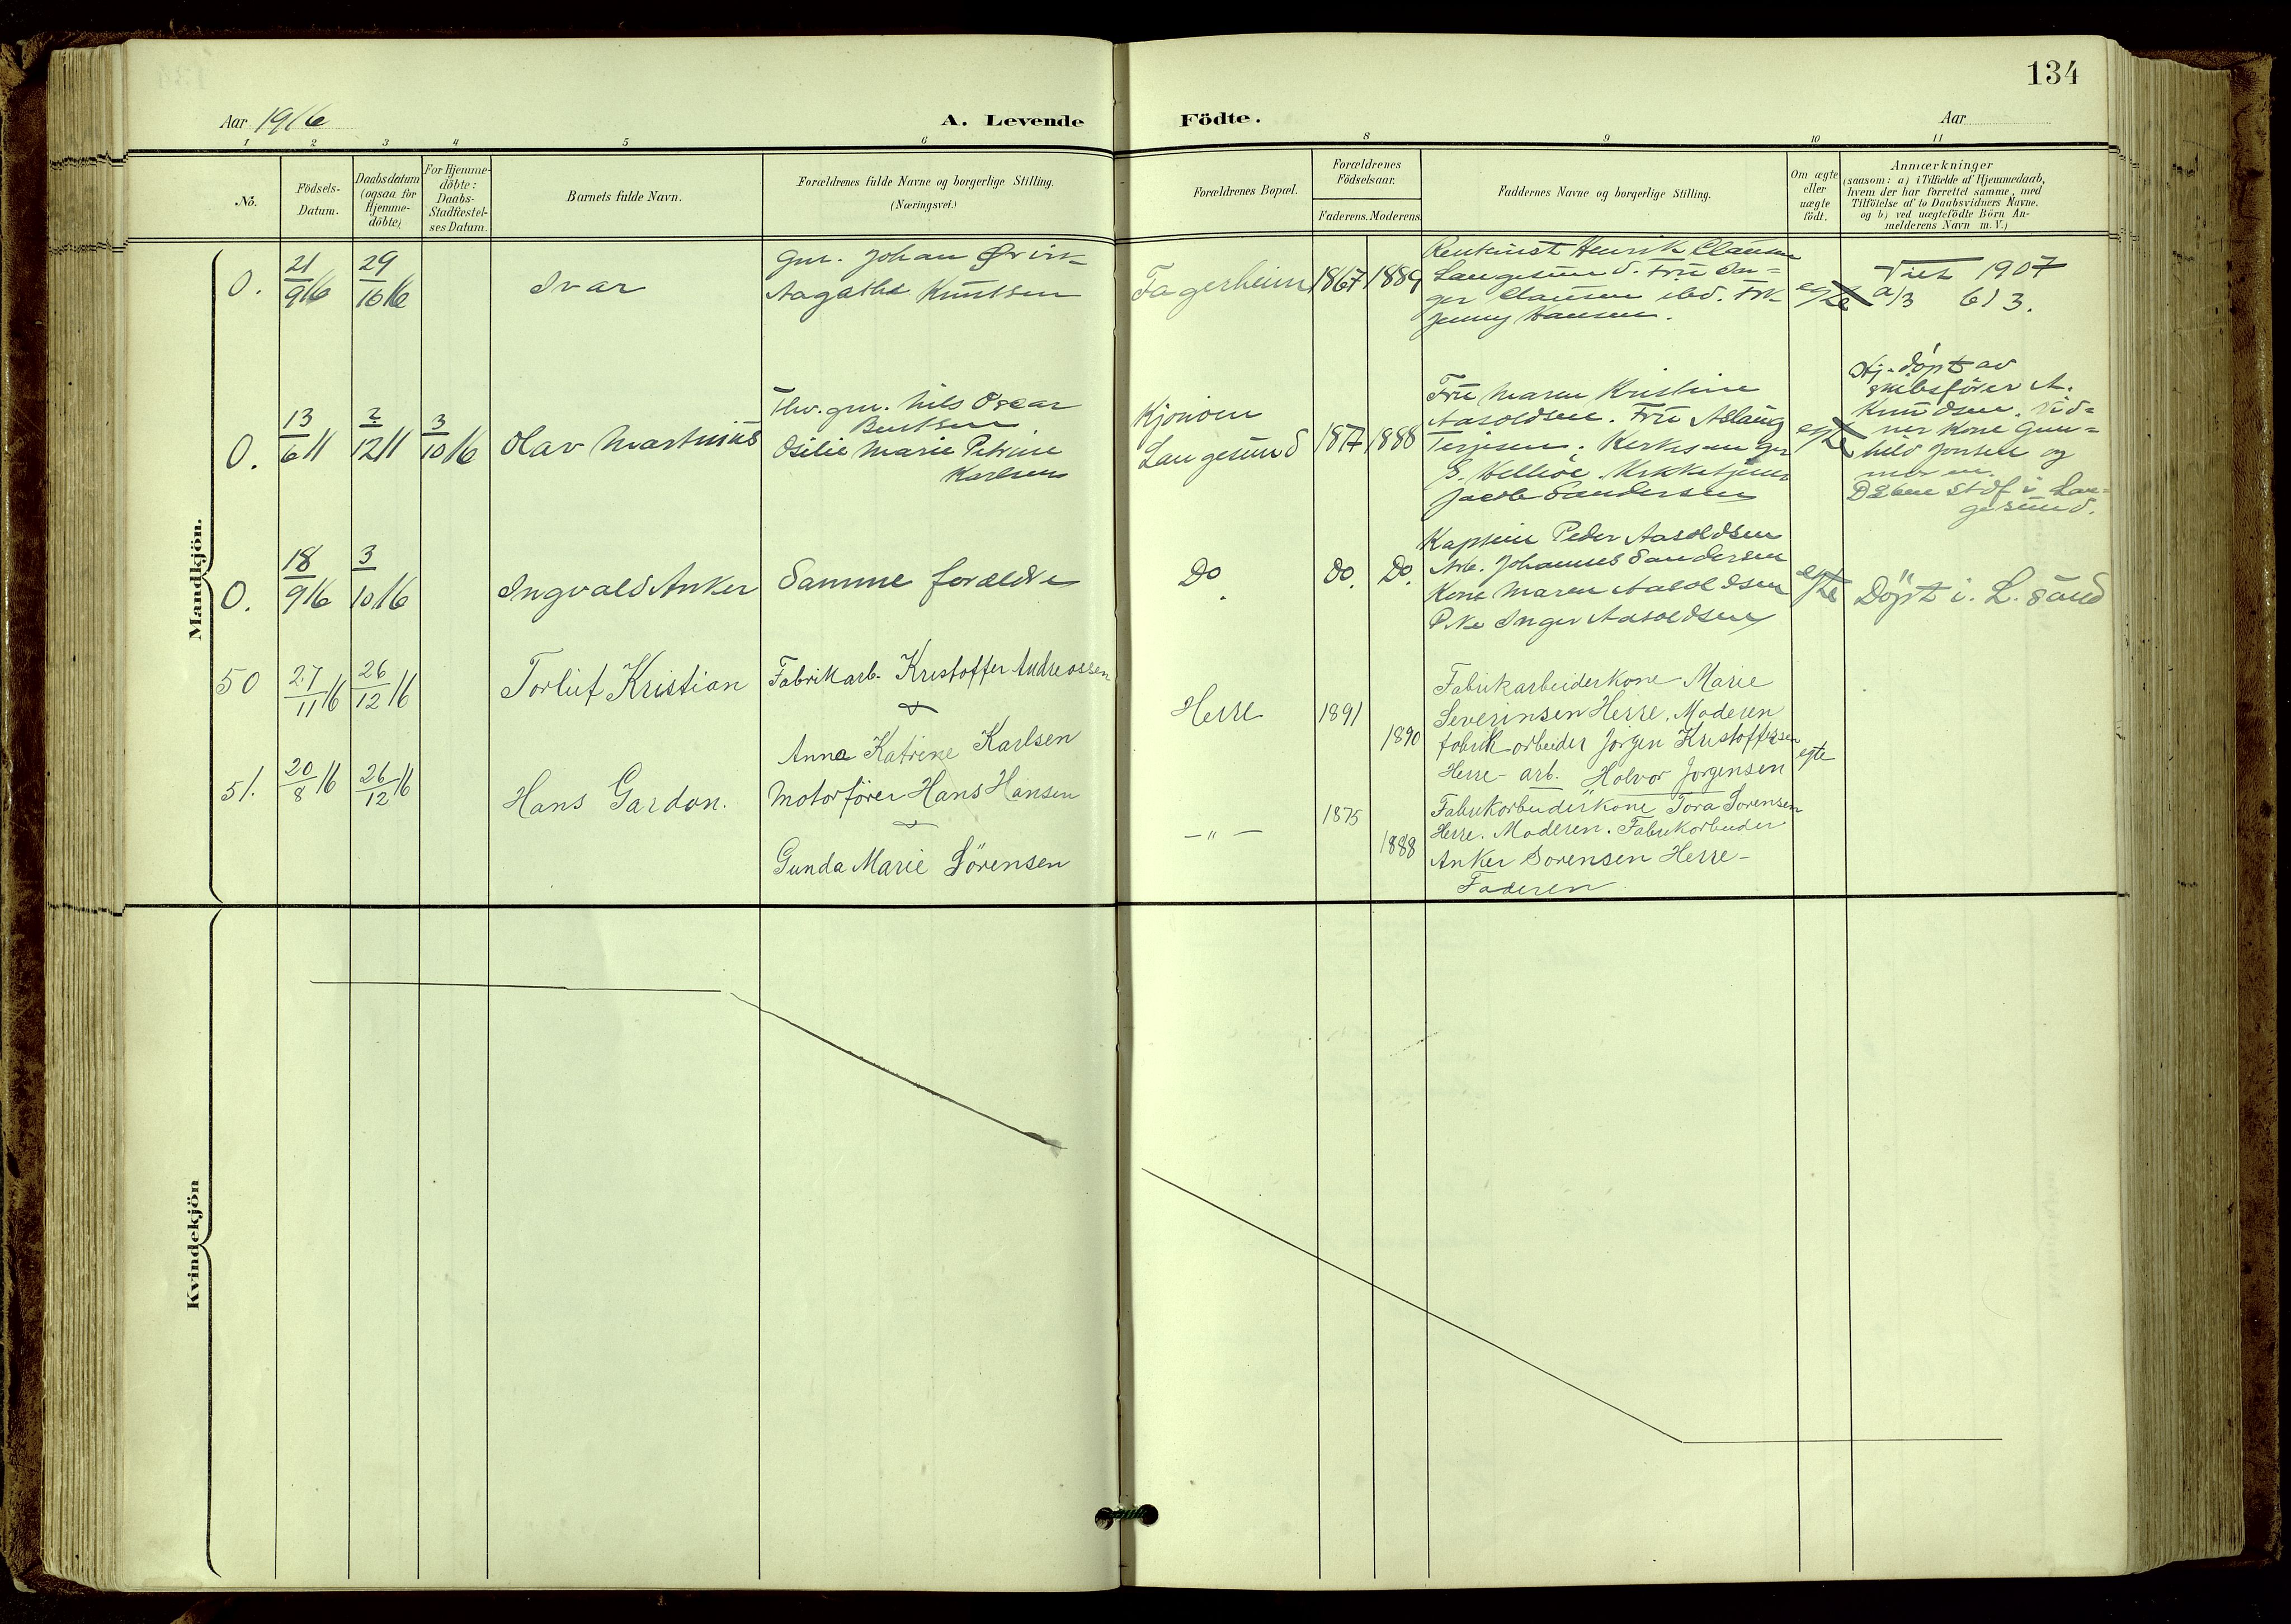 134
Aar 1916
A. Levende
Födte.
Aar
1 2 3 4 5 6 8 9 10 11
No.
Födsels-
Datum.
Daabsdatum
(ogsaa for
Hjemme-
döbte)
For Hjemme-
döbte:
Daabs-
Stadfæstel-
ses Datum.
Barnets fulde Navn.
Forældrenes fulde Navne og borgerlige Stilling.
(Næringsvei.)
Forældrenes Bopæl.
Forældrenes
Födselsaar.
Faderens. Moderens.
Faddernes Navne og borgerlige Stilling.
Om ægte
eller
uægte
födt.
Anmærkninger
(saasom: a) i Tilfælde af Hjemmedaab,
hvem der har forrettet samme, med
Tilföielse af to Daabsvidners Navne.
og b) ved uægtefödte Börn An-
melderens Navn m. V.)
Mandkjön.
0.
21/9 16
29/10 16
Ivar
Gm. Johan Ørvik
Aagathe Knutsen
Fagerheim
1867
1889
Henrik Clausen
Langesund. Fru In-
ger Clausen ibd. Frk
Jenny Hansen.
egte
Viet 1907
a/3 b/3.
0.
13/6 11
?/12 11
3/10 16
Olav Martinius
Thv. gm. Nils Oscar
Bentsen
Osilie Marie Petrine
Karlsen
Kjönöen
Langesund
1877
1888
Fru Maren Kristine
Aasoldsen. Fru Aslaug
Terjesen. Kirkesanger
G. Kirketjener
Jacob Sandersen
egte
Hj.döpt av
skibsförer A.
Knudsen. Vid-
ner Kone Gun-
hild Jonsen og
moren.
Daben stdf i Lan-
gesund.
0.
18/9 16
3/10 16
Ingvald Anker
Samme forældre
Do.
do.
Do.
Kaptein Peder Aasoldsen
Arb. Johannes Sandersen
Kone Maren Aasoldsen
Pike Inger Aasoldsen
egte
Döpt i L.sund
50
27/11 16
26/12 16
Torlief Kristian
Fabrikarb. Kristoffer Andreassen
Anna Katrine Karlsen
Herre
1891
1890
Fabrikarbeiderkone Marie
Severinsen Herre. Moderen
fabrikarbeider Jørgen Kristoffersen
Herre - arb. Halvor Jørgensen
egte
51.
20/8 16
26/12 16
Hans Gardon.
Motorförer Hans Hansen
Gunda Marie Sörensen
- " -
1875
1888
Fabrikarbeiderkone Tora Sorensen
Herre. Moderen. Fabrikarbeider
Anker Sorensen Herre -
Faderen
Kvindekjön